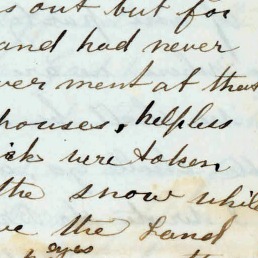 s out but for
and had never
ver ment at that
houses, helpless
ick were taken
the snow while
ve the Land
eyes